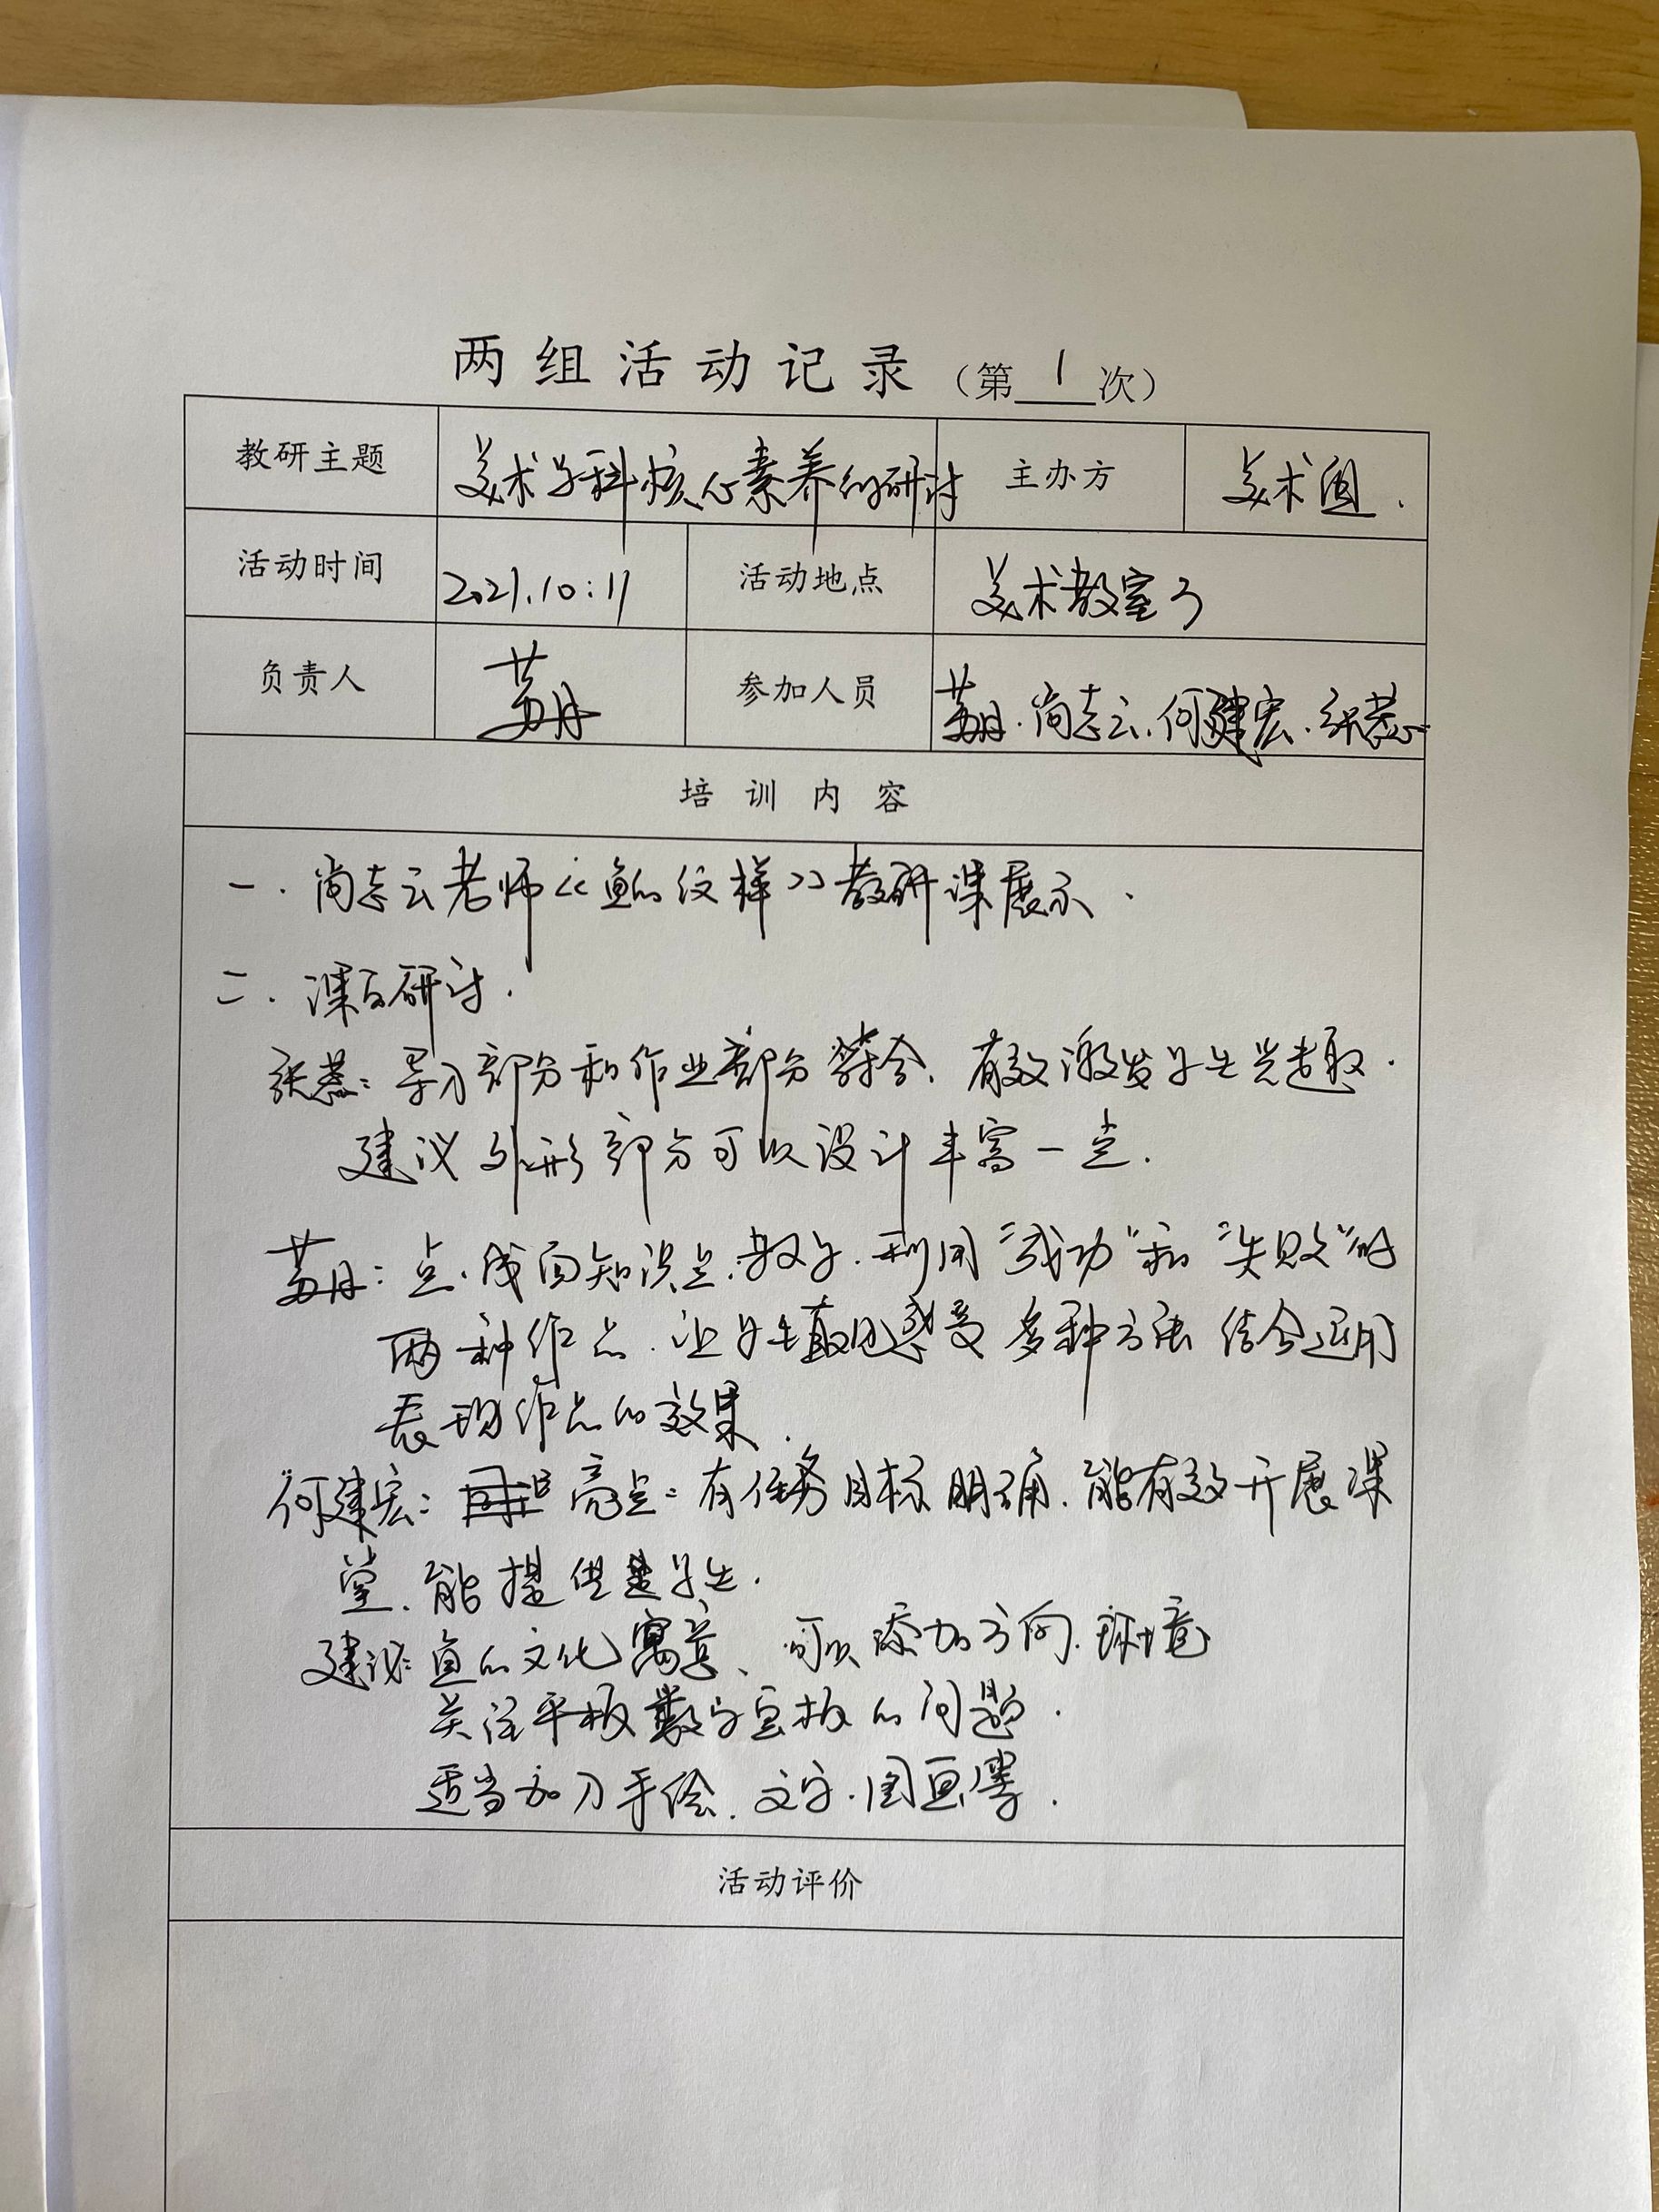 两组活动记录（第 1 次）
教研主题 美术学科核心素养的研讨 主办方 美术组.
活动时间 2021.10:11 活动地点 美术教室3
负责人 苏丹 参加人员 苏丹.尚志云.何建宏.张蕊
培训内容
一.尚志云老师《鱼的纹样》教研课展示.
二.课后研讨.
张蕊:导入部分和作业部分契合.有效激发学生兴趣.
建议外形部分可以设计丰富一点.
苏丹:点.线面知识点.教学.利用"成功"和"失败"的
两种作品.让学生直观感受多种方法结合运用
表现作品的效果.
何建宏: 亮点:有任务目标明确.能有效开展课
堂.能提供学生.
建议:鱼的文化寓意、可以添加方向.环境
关注平板数字画板的问题.
适当加入手绘.文字.国画等.
活动评价